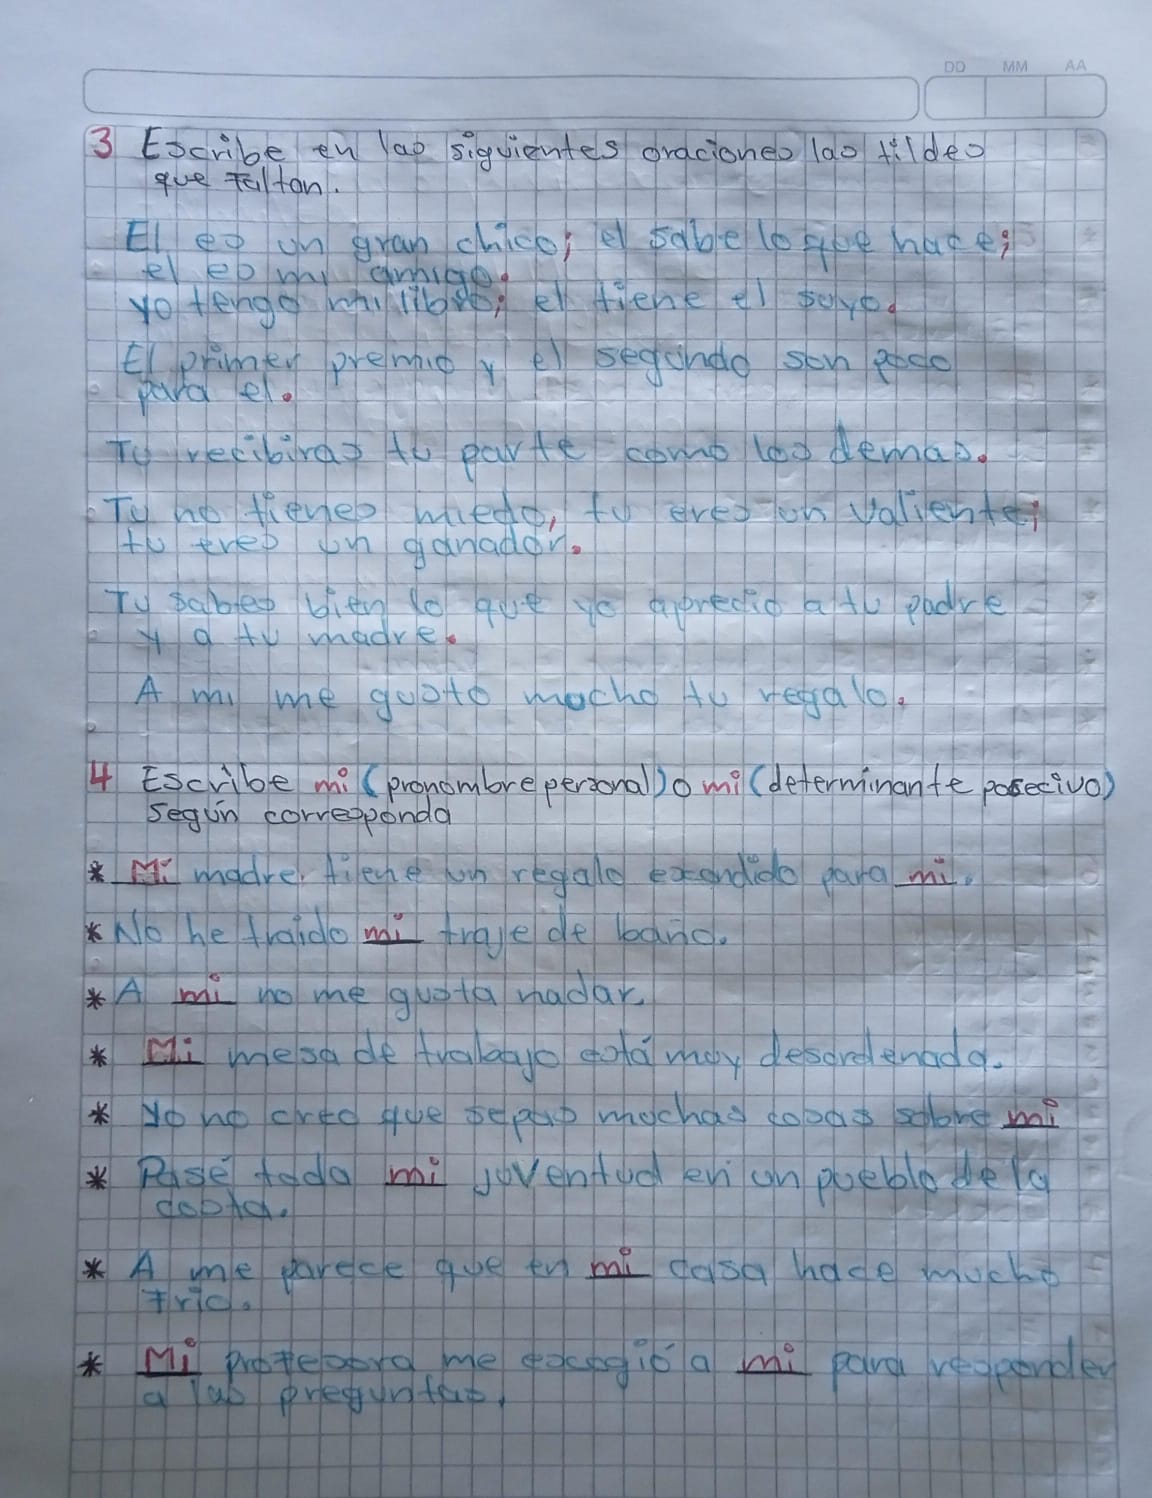 DD MM AA
3 Escribe en las siguientes oraciones las tildes
que faltan.
El es un gran chico; el sabe lo que hace;
el es mi amigo.
yo tengo mi libro; el tiene el suyo.
El primer premio y el segundo son poco
para el.
Tu recibiras tu parte como los demas.
Tu no tienes miedo, tu eres un valiente;
tu eres un ganador.
Tu sabes bien lo que yo aprecio a tu padre
y a tu madre.
A mi me gusto mucho tu regalo.
4 Escribe mi (pronombre personal) o mi (determinante posecivo)
Según corresponda
* Mi madre tiene un regalo escondido para mi.
* No he traido mi traje de baño.
* A mi no me gusta nadar.
* Mi mesa de trabajo está muy desordenada.
* Yo no creo que sepas muchas cosas sobre mi
* Pasé toda mi juventud en un pueblo de la
costa.
* A me parece que en mi casa hace mucho
frio.
* Mi profesora me escogió a mi para responder
a las preguntas.